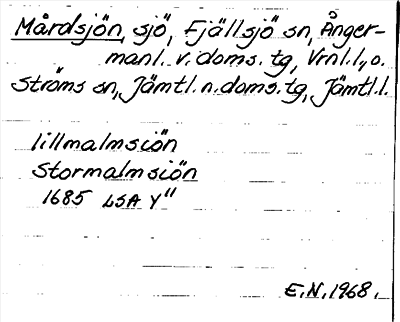 Mårdsjön, sjö, Fjällsjö sn, Ånger-
manl. v. doms. tg, Vrnl.l., o.
Ströms sn, Jämtl. n. doms. tg, Jämtl.l.
lillmalmsiön
Stormalmsiön
1685 LSA Y"
E.N. 1968.